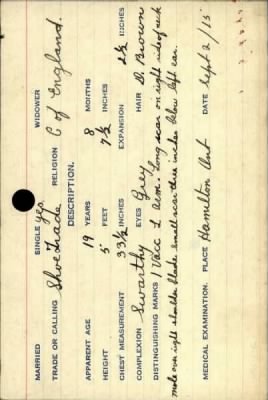 MARRIED SINGLE yes. WIDOWER
TRADE OR CALLING Shoe Trade RELIGION C of England.
DESCRIPTION.
APPARENT AGE 19 YEARS 8 MONTHS
HEIGHT 5 FEET 7½ INCHES
CHEST MEASUREMENT 33½ INCHES EXPANSION 2½ INCHES
COMPLEXION Swarthy EYES Grey HAIR D. Brown
DISTINGUISHING MARKS 1 Vacc L arm. Long scar on right side of neck
mole over right shoulder blade small scar three inches below left ear.
MEDICAL EXAMINATION. PLACE Hamilton Ont DATE Sept 2/15